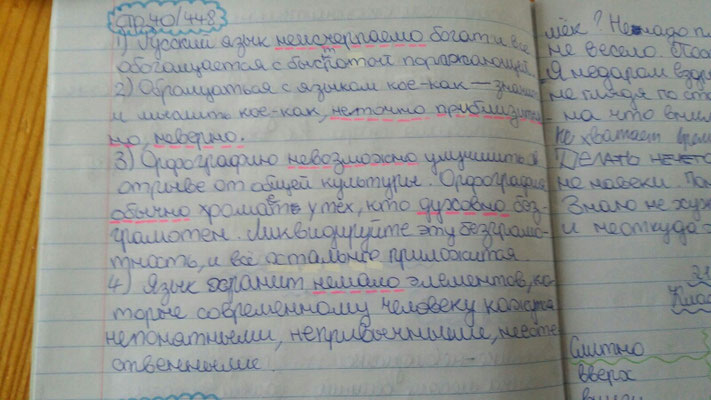 стр.40/448
1) Русский язык неисчерпаемо богат и всё
обогащается с быстротой поражающей.
2) Обращаться с языком кое-как — значит
и мыслить кое-как, неточно, приблизитель-
но, неверно.
3) Орфографию невозможно улучшить в
отрыве от общей культуры. Орфография
обычно хромает у тех, кто духовно без-
грамотен. Ликвидируйте эту безграмо-
тность, и всё остальное приложится.
4) Язык хранит немало элементов, ко-
торые современному человеку кажутся
непонятными, непривычными, неесте-
ственными.
Не надо
не весело.
Я недаром
не глядя по
на что
не хватает
Делать
не навеки.
Знаю не
и неоткуда
Слитно
вверх